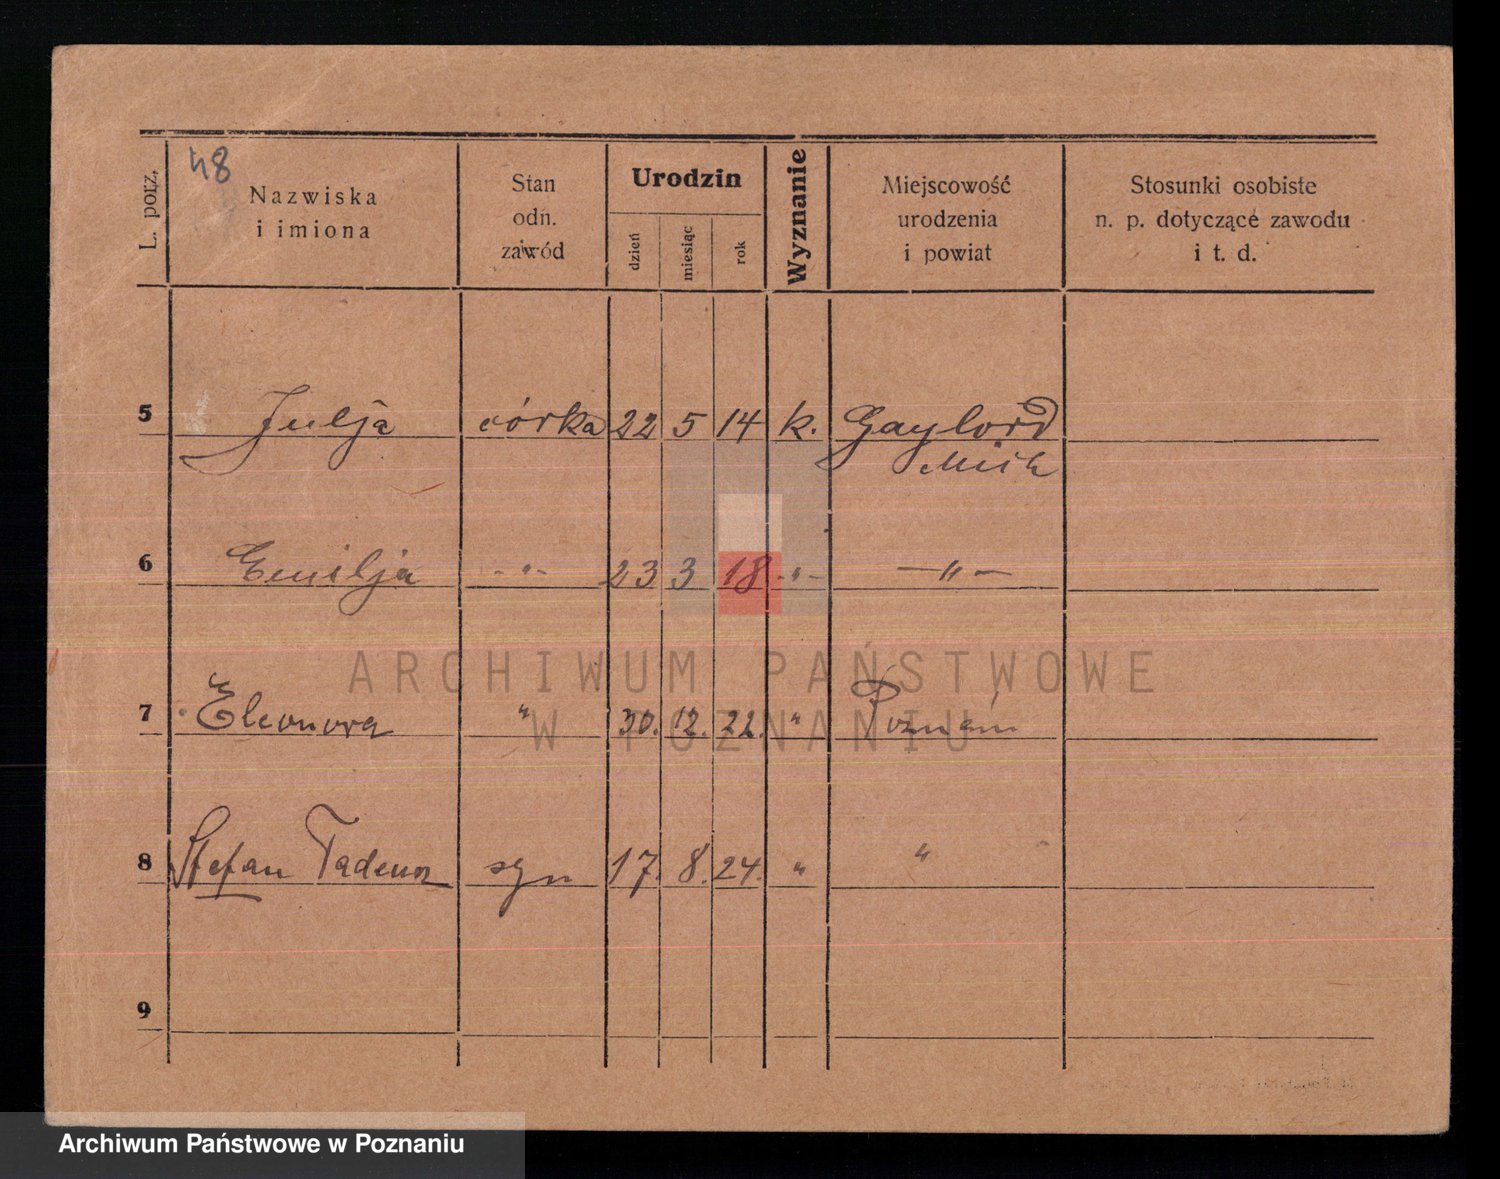 48
L. porz.
Nazwiska
i imiona
Stan
odn.
zawód
Urodzin
dzień
miesiąc
rok
Wyznanie
Miejscowość
urodzenia
i powiat
Stosunki osobiste
n. p. dotyczące zawodu
i t. d.
5 Julja córka 22 5 14 k. Gaylord
Mich
6 Emilja -"- 23 3 18 -"- -"-
7 Eleonora " 30. 12. 22. " Poznań
8 Stefan Tadeusz syn 17. 8. 24. " "
9
ARCHIWUM PAŃSTWOWE
W POZNANIU
Archiwum Państwowe w Poznaniu